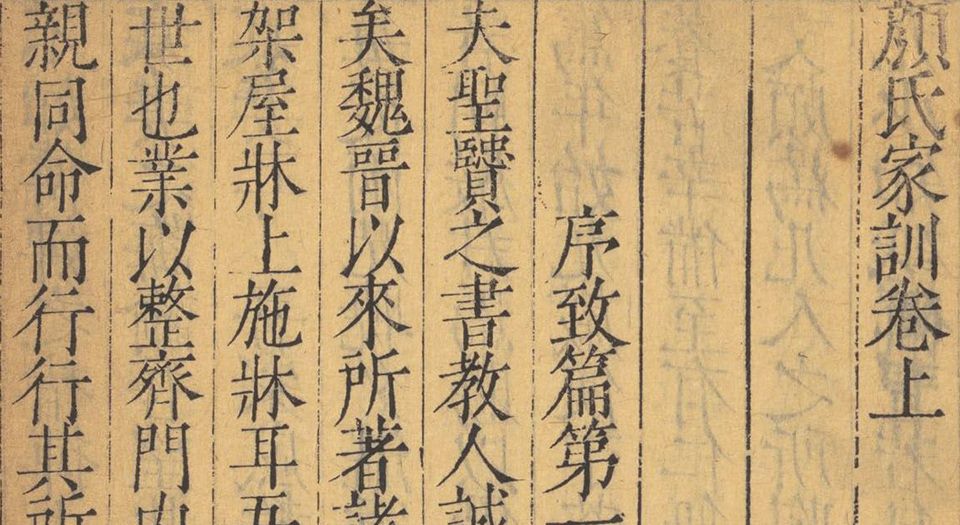 顔氏家訓卷上
序致篇第一
夫聖賢之書教人誠
矣魏晉以來所著諸
架屋牀上施牀耳吾
世也業以整齊門内
親同命而行行其所